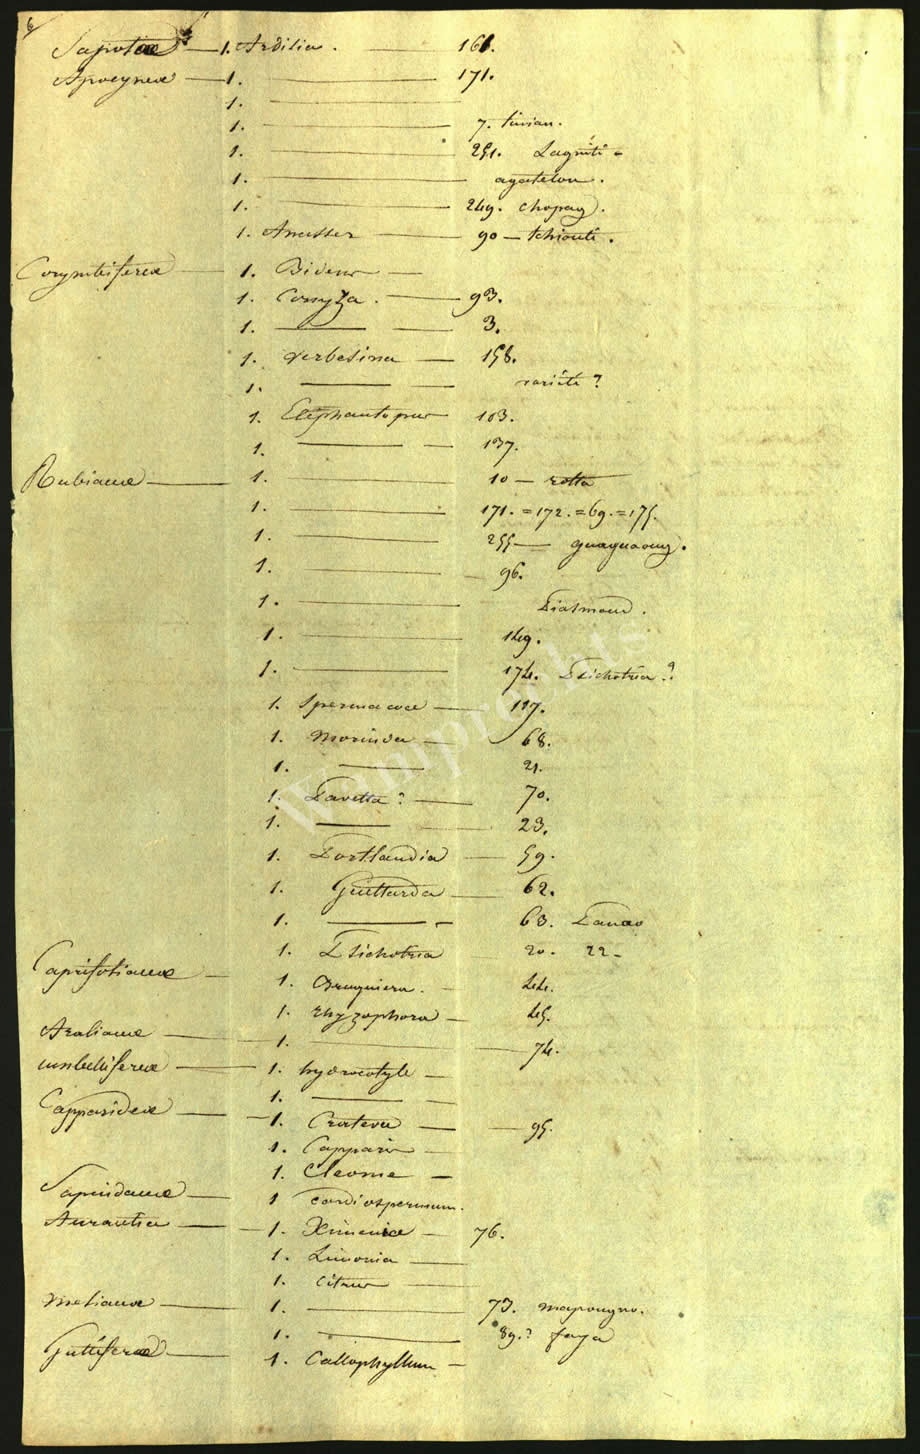 6
Sapoteae — 1. Ardisia. — 161.
Apocyneae — 1. — 171.
1. —
1. — 7. tivian.
1. — 251. Lagniti=
1. — agatelou.
1. — 249. chopag.
1. Anasser — 90 — tchiouti.
Corymbiferae — 1. Bidens —
1. Conyza. — 93.
1. — — 3.
1. Verbesina — 158.
1. — — variété?
1. Elephantopus 103.
1. — — 137.
Rubiaceae — 1. 10 —
1. — 171. = 172. = 69. = 175.
1. — 255 —
1. — 96.
1. —
1. — 149.
1. — 174. Psichotria?
1. Spermacoce — 117.
1. Morinda — 68.
1. — 21.
1. Pavetta? — 70.
1. — — 23.
1. Portlandia — 59.
1. Guettarda — 62.
1. — - 63. Panao
1. Psichotria 20. 22 -
Caprifoliaceae — 1. Bruguiera. — 44.
1. Rhyzophora — 45.
Araliaceae — 1. — 74.
umbelliferae — 1. hydrocotyle —
1. — —
Capparideae — 1. Crateva — 95.
1. Capparis —
1. Cleome —
Sapindaceae — 1 Cardiospermum.
Aurantiae — 1. Ximenia — 76.
1. Limonia —
1. Citrus —
Meliaceae — 1. — 73. mapougno.
1. — 89.? faya
Guttiferae — 1. Callophyllum —
Wamprechts